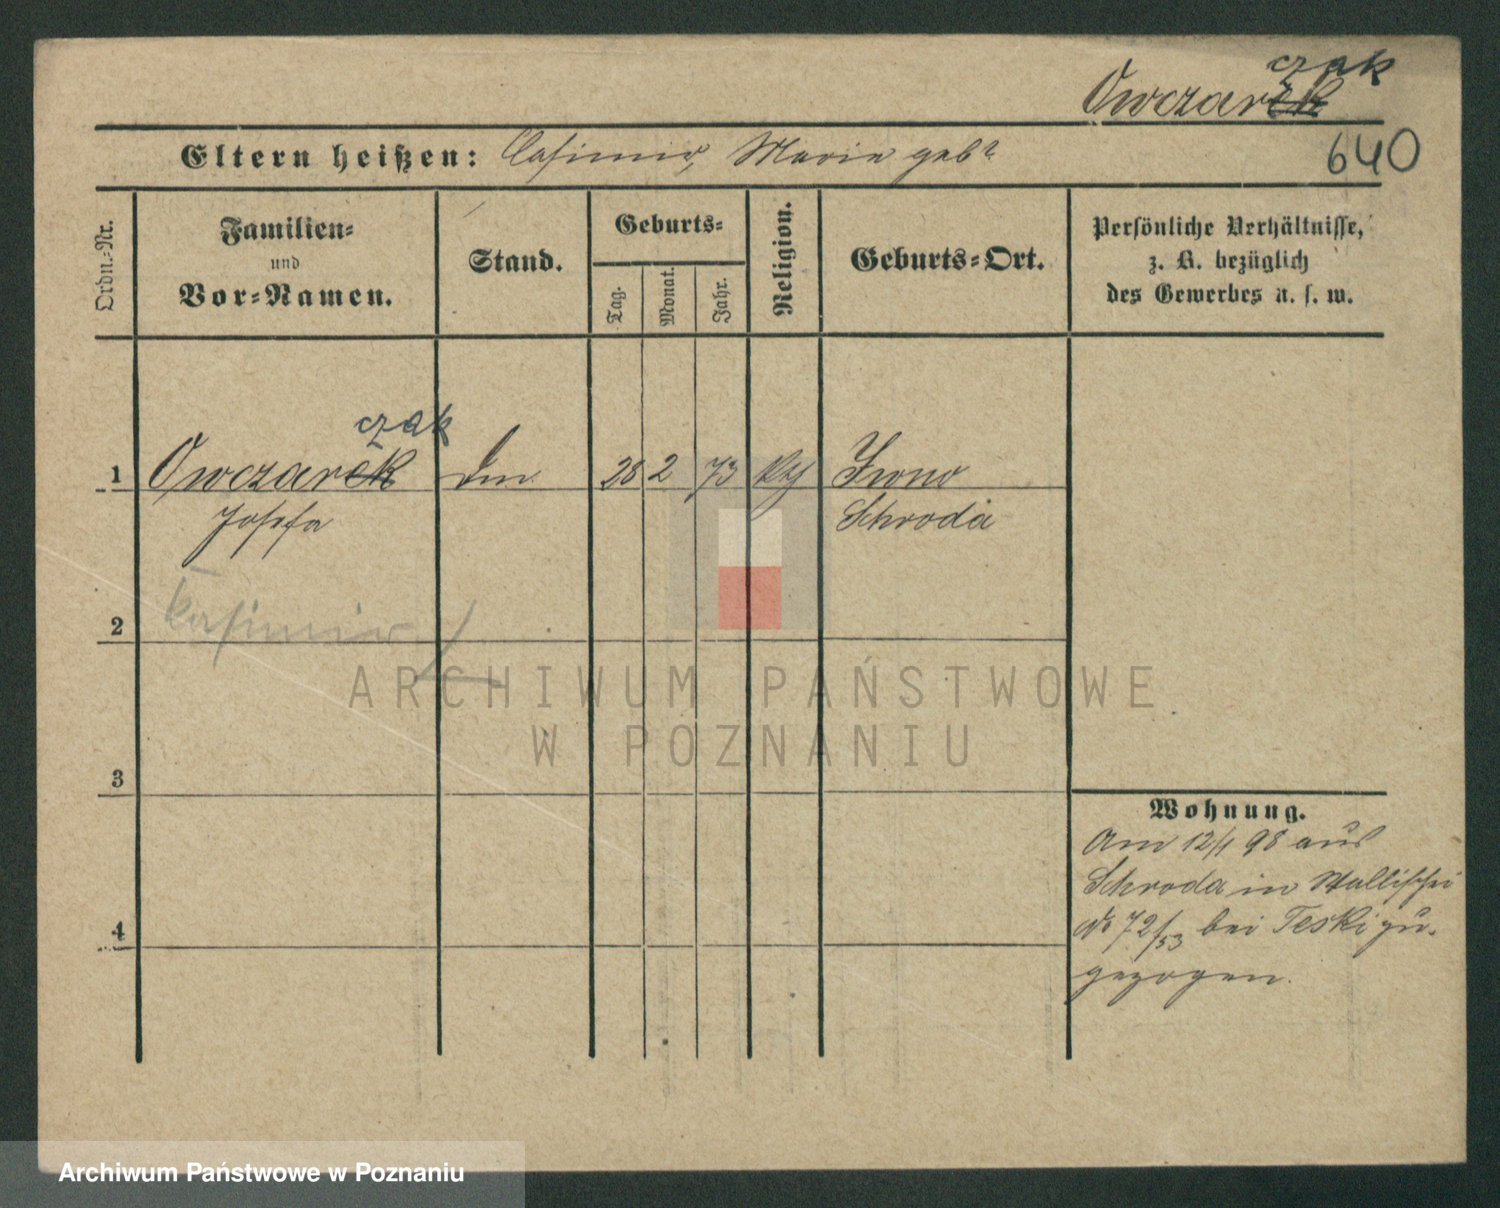 czak
Owczarek
Eltern heißen: Casimir, Marie geb?
640
Ordn.-Nr.
Familien-
und
Vor-Namen.
Stand.
Geburts-
Tag.
Monat.
Jahr.
Religion.
Geburts-Ort.
Persönliche Verhältnisse,
z. B. bezüglich
des Gewerbes u. s. w.
czak
1 Owczarek 28 2 73 Iwno
Josefa Schroda
2 Kasimir
ARCHIWUM PAŃSTWOWE
W POZNANIU
3
Wohnung.
Am 12/1 98 aus
Schroda in Wallischei
No 72/53 bei Teski zu-
gezogen.
4
Archiwum Państwowe w Poznaniu